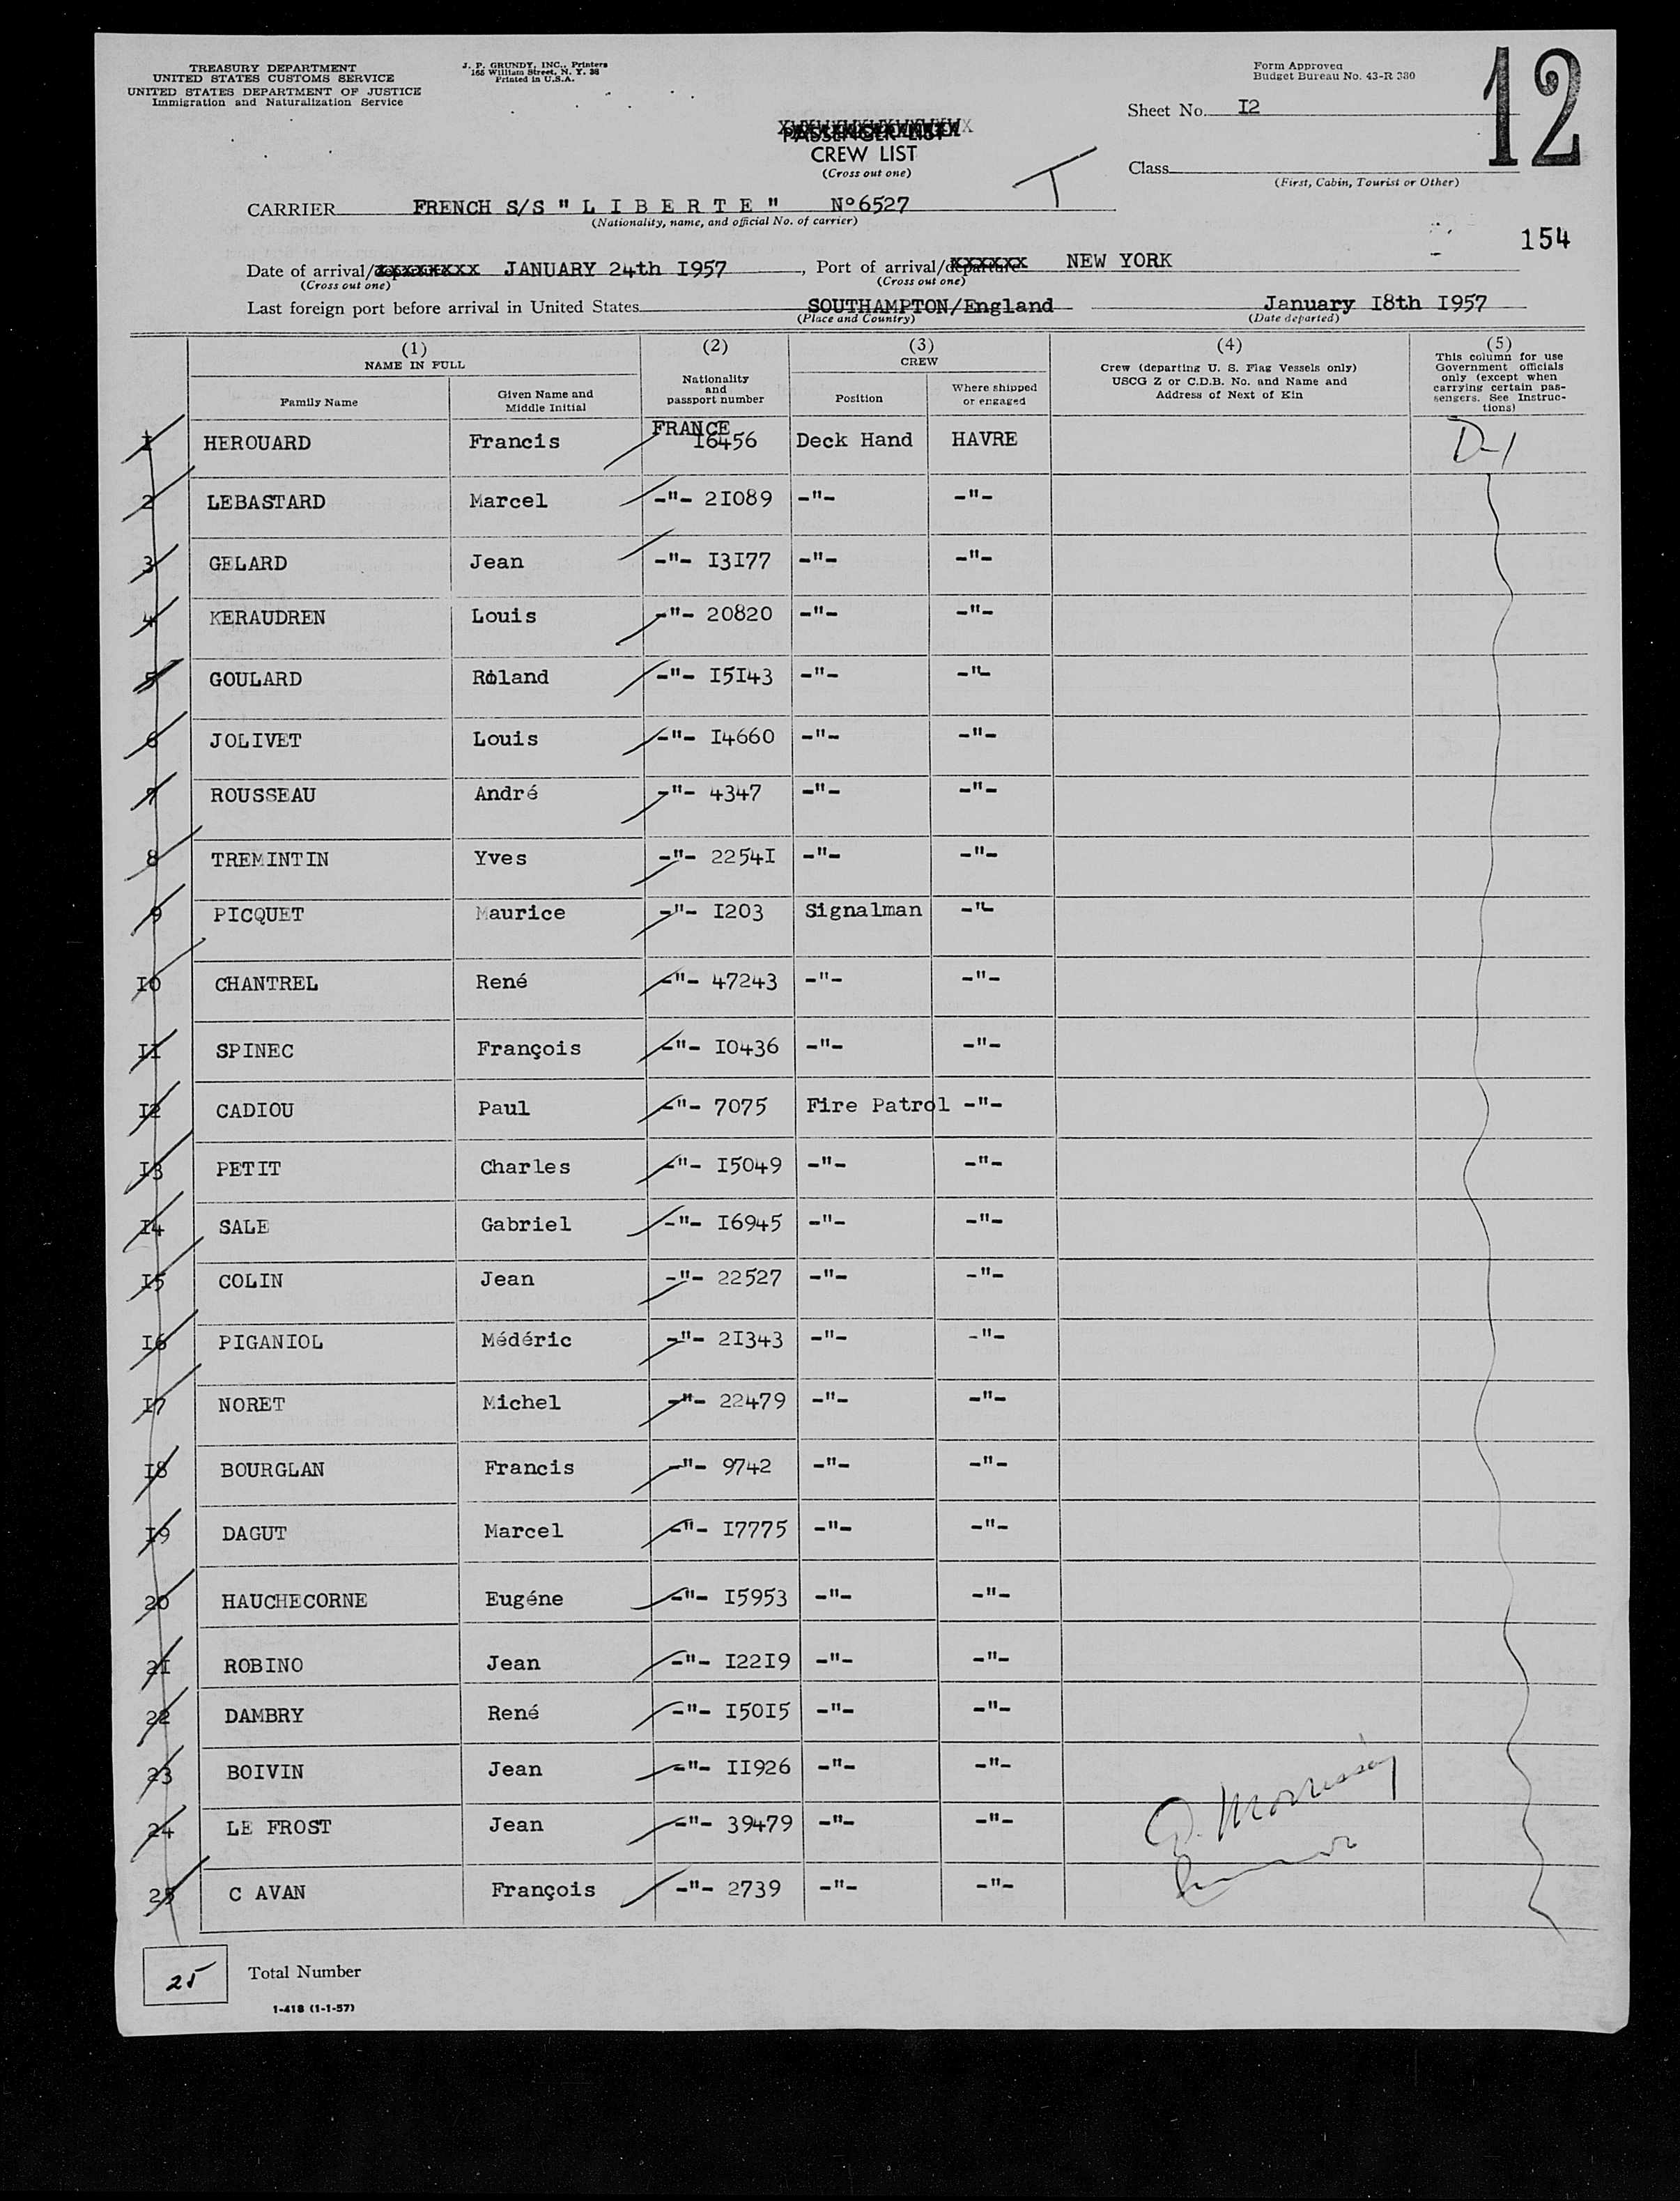 TREASURY DEPARTMENT
UNITED STATES CUSTOMS SERVICE
UNITED STATES DEPARTMENT OF JUSTICE
Immigration and Naturalization Service
J. P. GRUNDY, INC., Printers
165 William Street, N. Y. 38
Printed in U.S.A.
Form Approved
Budget Bureau No. 43-R 380
12
Sheet No. I2
PASSENGER LIST
CREW LIST
(Cross out one)
T
Class
(First, Cabin, Tourist or Other)
CARRIER FRENCH S/S " L I B E R T E " N°6527
(Nationality, name, and official No. of carrier)
154
Date of arrival/departure JANUARY 24th I957, Port of arrival/departure NEW YORK
(Cross out one) (Cross out one)
Last foreign port before arrival in United States SOUTHAMPTON/England January I8th I957
(Place and Country) (Date departed)
(1) NAME IN FULL
Family Name
Given Name and Middle Initial
(2) Nationality and passport number
(3) CREW
Position
Where shipped or engaged
(4) Crew (departing U. S. Flag Vessels only) USCG Z or C.D.B. No. and Name and Address of Next of Kin
(5) This column for use Government officials only (except when carrying certain passengers. See Instructions)
I HEROUARD Francis FRANCE I6456 Deck Hand HAVRE D-1
2 LEBASTARD Marcel -"- 2I089 -"- -"-
3 GELARD Jean -"- I3I77 -"- -"-
4 KERAUDREN Louis -"- 20820 -"- -"-
5 GOULARD Roland -"- I5I43 -"- -"-
6 JOLIVET Louis -"- I4660 -"- -"-
7 ROUSSEAU André -"- 4347 -"- -"-
8 TREMINTIN Yves -"- 2254I -"- -"-
9 PICQUET Maurice -"- I203 Signalman -"-
I0 CHANTREL René -"- 47243 -"- -"-
II SPINEC François -"- I0436 -"- -"-
I2 CADIOU Paul -"- 7075 Fire Patrol -"-
I3 PETIT Charles -"- I5049 -"- -"-
I4 SALE Gabriel -"- I6945 -"- -"-
I5 COLIN Jean -"- 22527 -"- -"-
I6 PIGANIOL Médéric -"- 2I343 -"- -"-
I7 NORET Michel -"- 22479 -"- -"-
I8 BOURGLAN Francis -"- 9742 -"- -"-
I9 DAGUT Marcel -"- I7775 -"- -"-
20 HAUCHECORNE Eugéne -"- I5953 -"- -"-
2I ROBINO Jean -"- I22I9 -"- -"-
22 DAMBRY René -"- I50I5 -"- -"-
23 BOIVIN Jean -"- II926 -"- -"-
24 LE FROST Jean -"- 39479 -"- -"-
25 C AVAN François -"- 2739 -"- -"-
25 Total Number
1-418 (1-1-57)